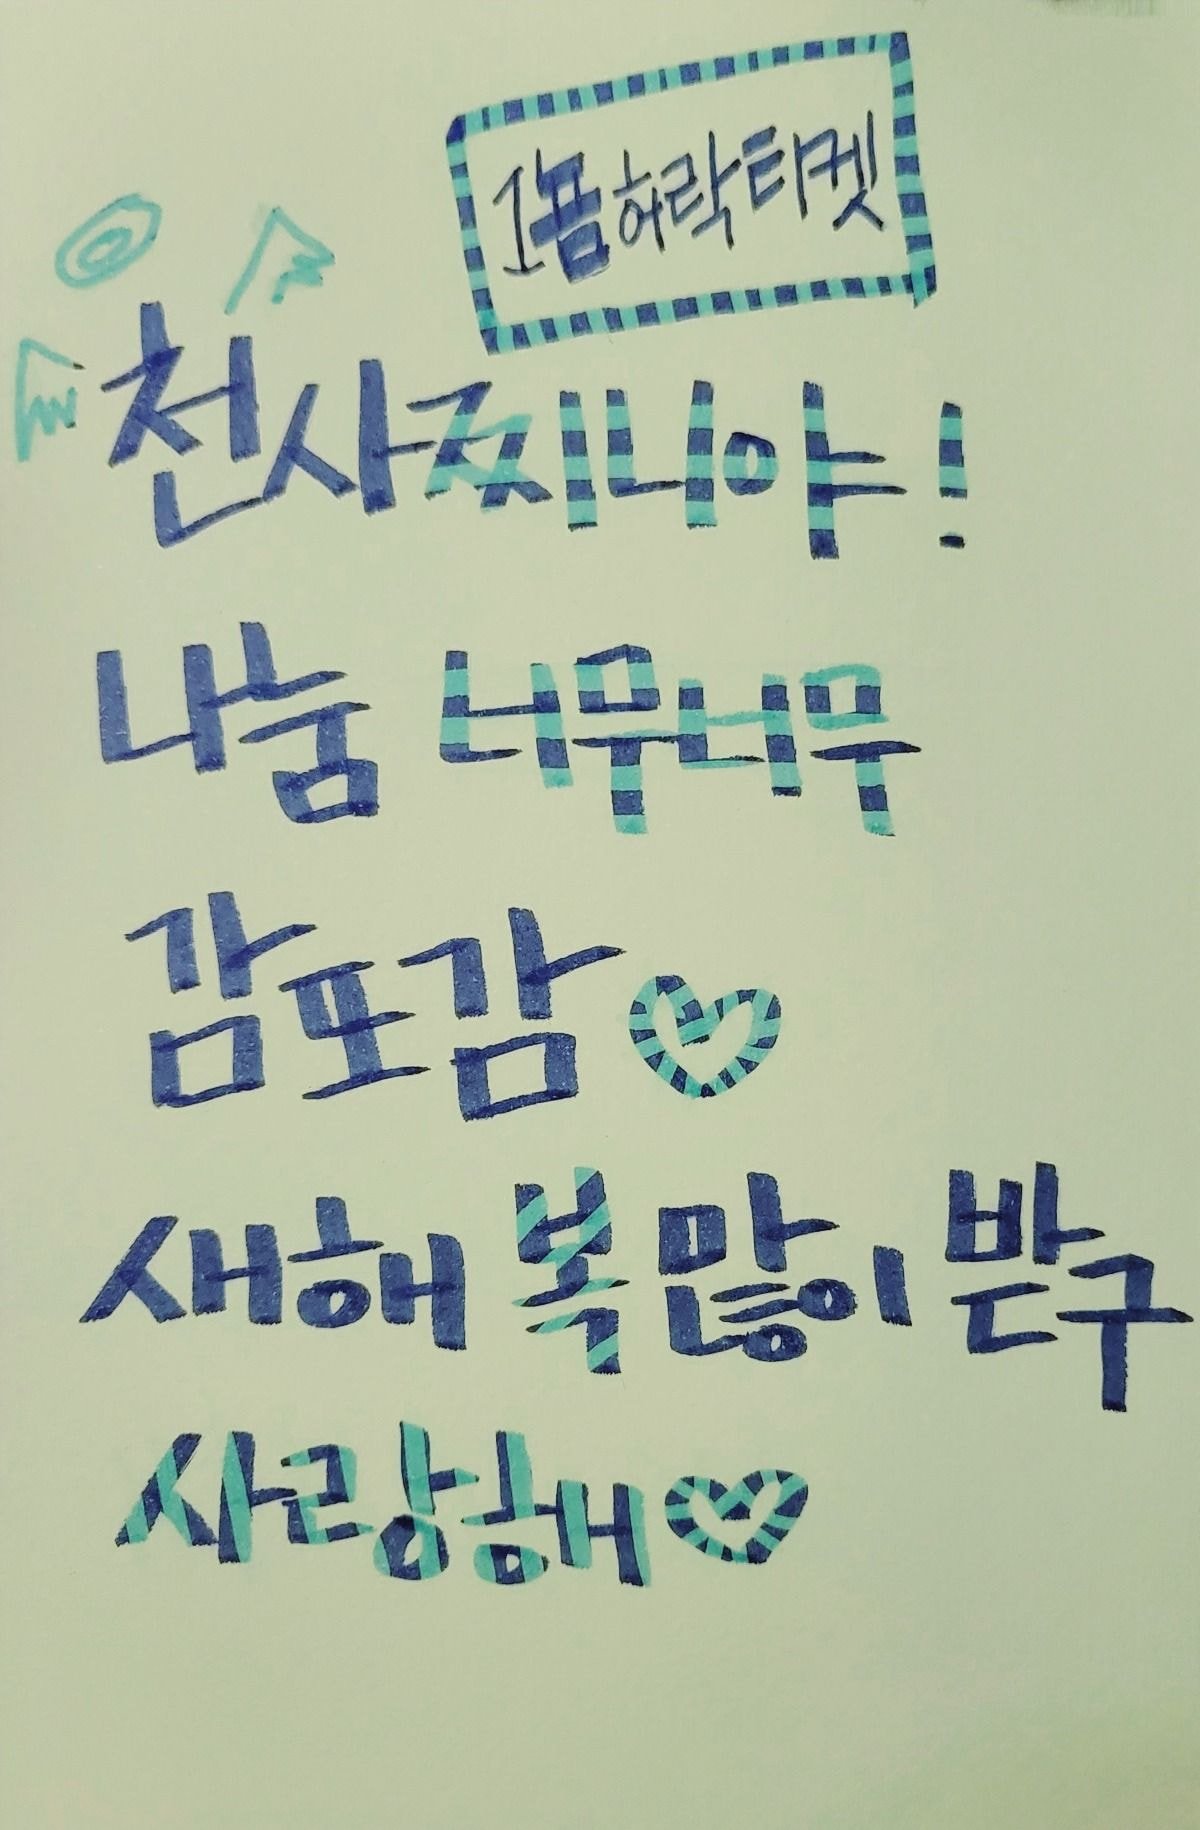 1폼허락티켓
천사찌니야!
나눔 너무너무
감포감♡
새해 복 많이 받구
사랑해♡